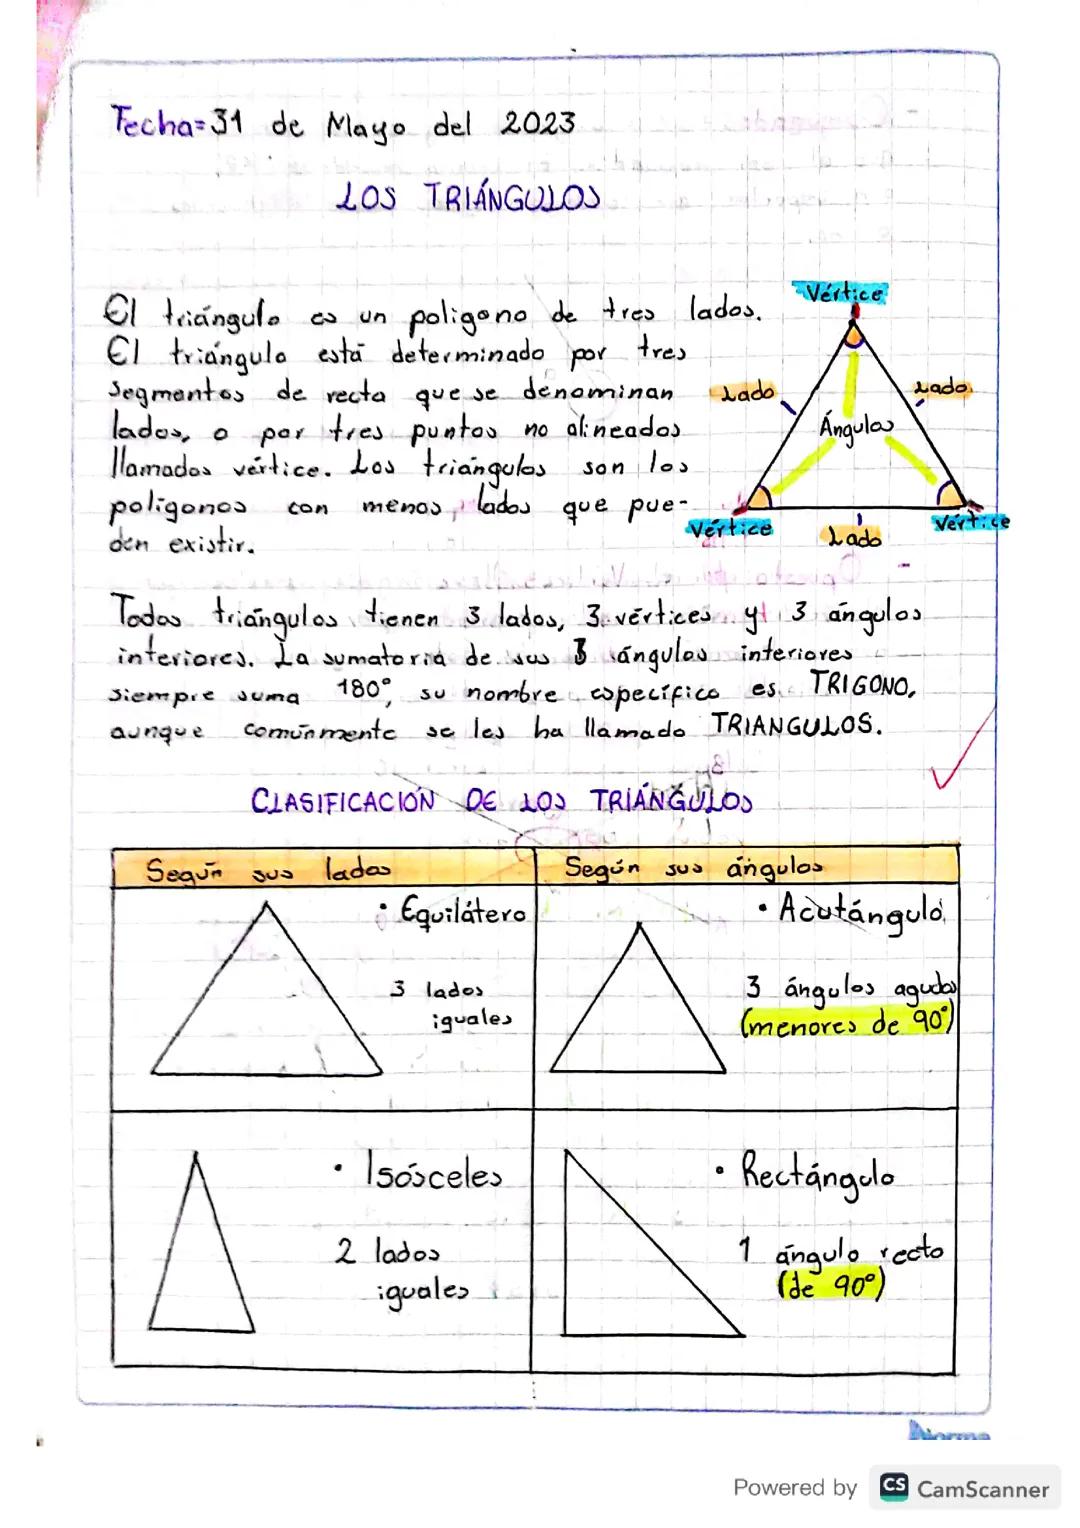 Fecha=31 de Mayo del 2023
LOS TRIÁNGULOS
El triángulo es un poligono de tres lados.
El triángulo está determinado por tres
segmentos de recta que se denominan
lados, o por tres puntos no alineados
llamados vértice. Los triángulos son los
poligonos con menos lados que pue-
den existir.
Vértice
Lado
Lado
Ángulos
Vértice
Lado
Vértice
Todos triángulos tienen 3 lados, 3 vértices y 3 ángulos
interiores. La sumatoria de sus 3 ángulos interiores
siempre suma 180°, su nombre específico es TRIGONO,
aunque comúnmente se les ha llamado TRIANGULOS.
CLASIFICACIÓN DE LOS TRIÁNGULOS
Según sus lados
Según sus ángulos
• Equilátero
3 lados
iguales
• Acutángulo
3 ángulos agudos
(menores de 90°)
• Isósceles
2 lados
iguales
• Rectángulo
1 ángulo recto
(de 90°)
Norma
Powered by CS CamScanner